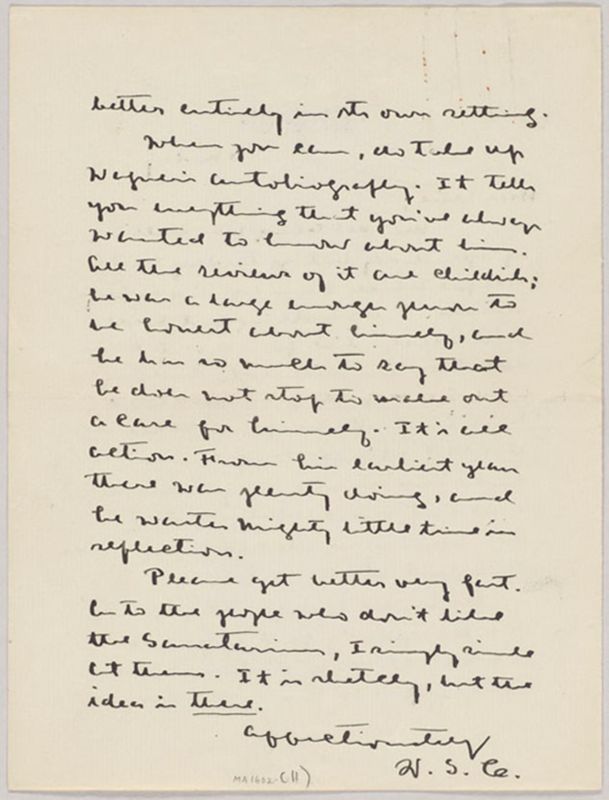 better entirely in its own setting.
When you can, do take up
Wagner's autobiography. It tells
you everything that you've always
wanted to know about him.
All the reviews of it are childish;
he was a large enough person to
be honest about himself, and
he has so much to say that
he does not stop to make out
a case for himself. It's all
action. From his earliest years
there was plenty doing, and
he wastes mighty little time in
reflection.
Please get better very fast.
As to the people who don't like
the Sanatarium, I simply smile
at them. It is sketchy, but the
idea is there.
Affectionately
W. S. C.
MA1602-(11)